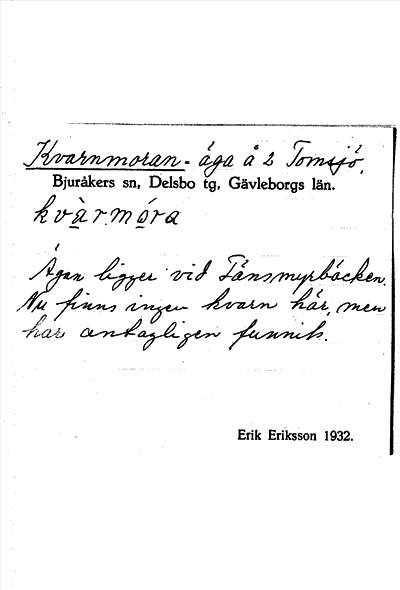 Kvarnmoran - äga å 2 Tomsjö.
Bjuråkers sn, Delsbo tg, Gävleborgs län.
kvàrmóra
Ägan ligger vid Fånsmyrbäcken.
Nu finns ingen kvarn här, men
har antagligen funnits.
Erik Eriksson 1932.